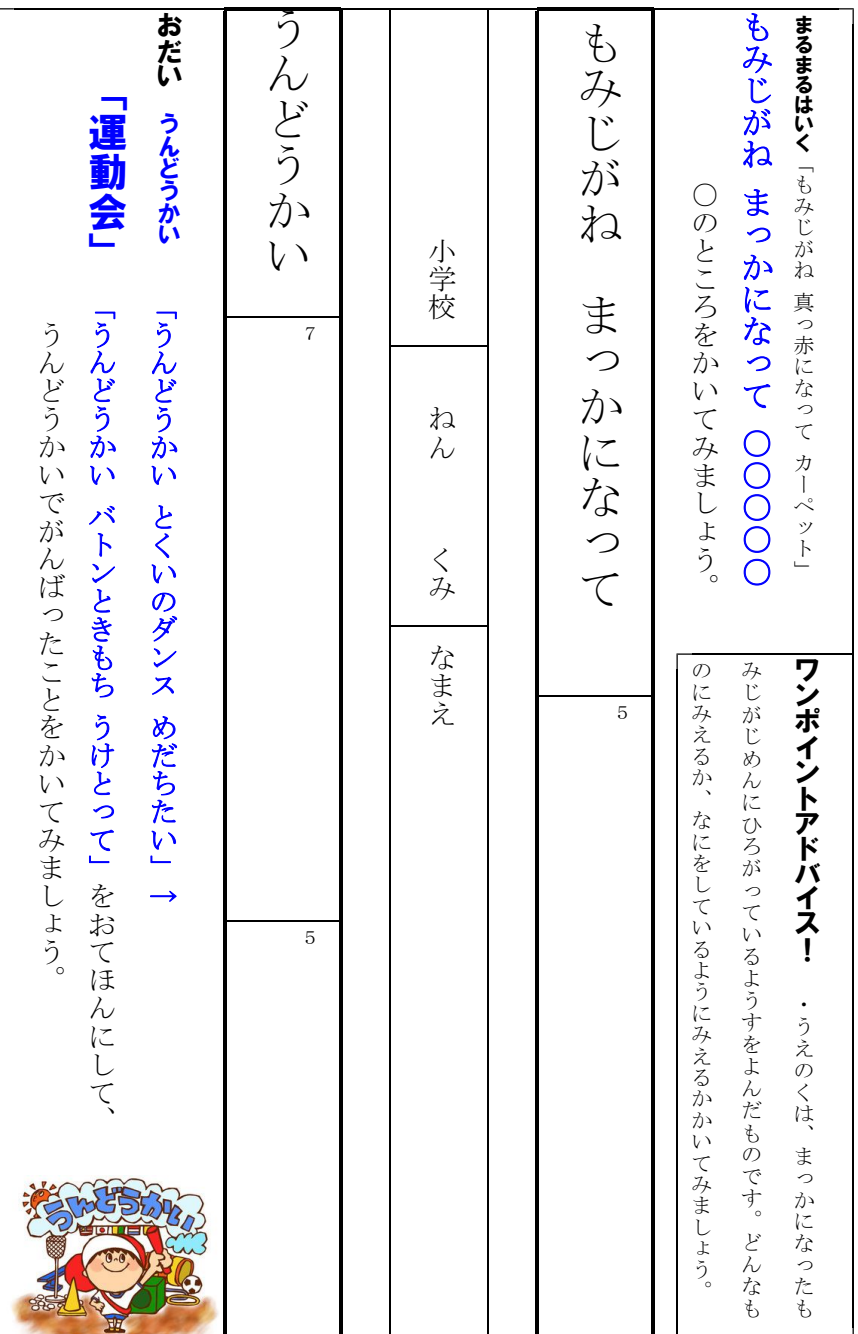 まるまるはいく「もみじがね 真っ赤になって カーペット」
もみじがね まっかになって 〇〇〇〇〇
〇のところをかいてみましょう。
ワンポイントアドバイス！ ・うえのくは、まっかになったも
みじがじめんにひろがっているようすをよんだものです。どんなも
のにみえるか、なにをしているようにみえるかかいてみましょう。
もみじがね まっかになって
5
小学校 ねん くみ なまえ
うんどうかい
7
5
おだい うんどうかい
「運動会」
「うんどうかい とくいのダンス めだちたい」→
「うんどうかい バトンときもち うけとって」をおてほんにして、
うんどうかいでがんばったことをかいてみましょう。
うんどうかい